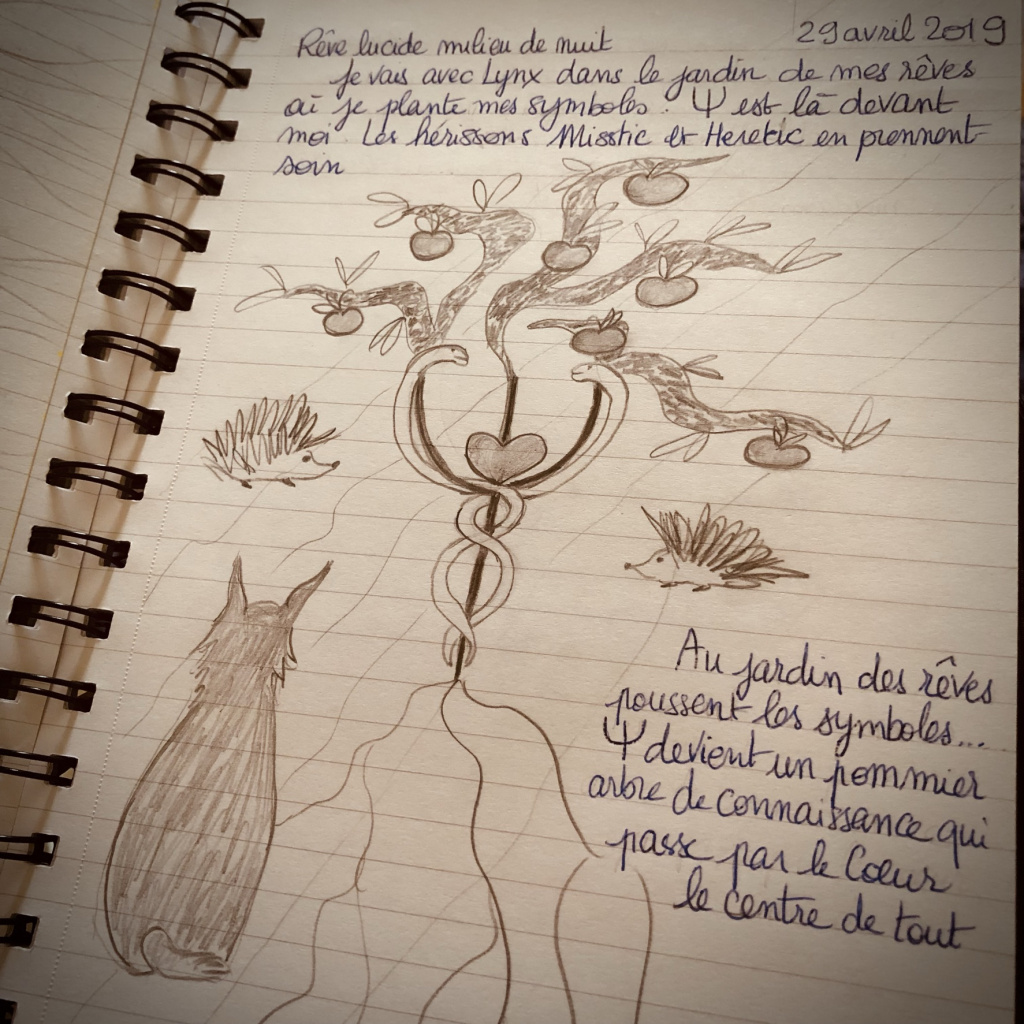 29 avril 2019
Rêve lucide milieu de nuit
Je vais avec Lynx dans le jardin de mes rêves
où je plante mes symboles. Ψ est là devant
moi. Les hérissons Misstic et Heretic en prennent
soin
Au jardin des rêves
poussent les symboles...
Ψ devient un pommier
arbre de connaissance qui
passe par le Coeur
le centre de tout